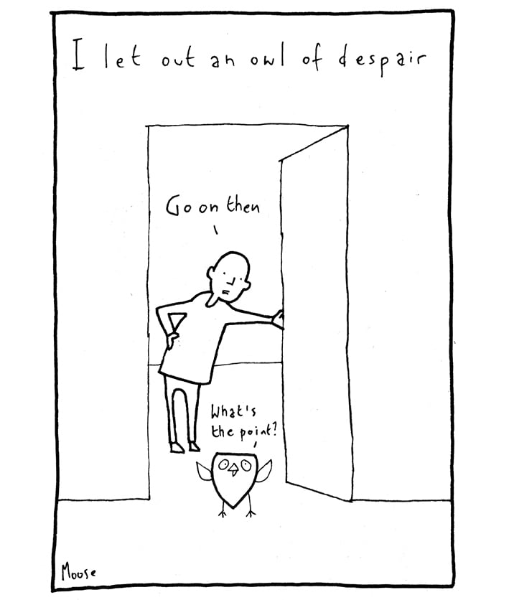 I let out an owl of despair
Go on then
What's
the point?
Moose